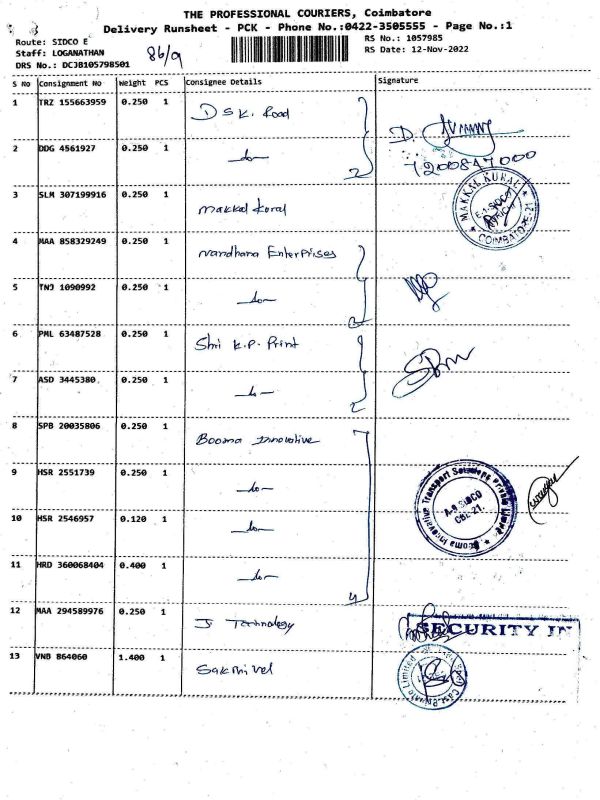 THE PROFESSIONAL COURIERS, Coimbatore
Delivery Runsheet - PCK - Phone No.:0422-3505555 - Page No.:1
Route: SIDCO E
Staff: LOGANATHAN
DRS No.: DCJB105798501
86/9
RS No.: 1057985
RS Date: 12-Nov-2022
S No Consignment No Weight PCS Consignee Details Signature
1 TRZ 155663959 0.250 1 DSK. Road
2 DDG 4561927 0.250 1 -do- 2
D.
7200847000
3 SLM 307199916 0.250 1 Makkal Koral
MAKKAL KURAL
E-1 SIDCO
COIMBATORE-21
4 MAA 858329249 0.250 1 Nandhana Enterprises
5 TNJ 1090992 0.250 1 -do- 2
6 PML 63487528 0.250 1 Shri K.P. Print
7 ASD 3445380 0.250 1 -do- 2
8 SPB 20035806 0.250 1 Booma Innovative
9 HSR 2551739 0.250 1 -do-
10 HSR 2546957 0.120 1 -do-
11 HRD 360068404 0.400 1 -do- 4
Booma Innovative Transport Solutions Private Limited
A-9 SIDCO
CBE-21.
12 MAA 294589976 0.250 1 Technology
SECURITY IN
13 VNB 864060 1.400 1 Sakthivel
Private Limited